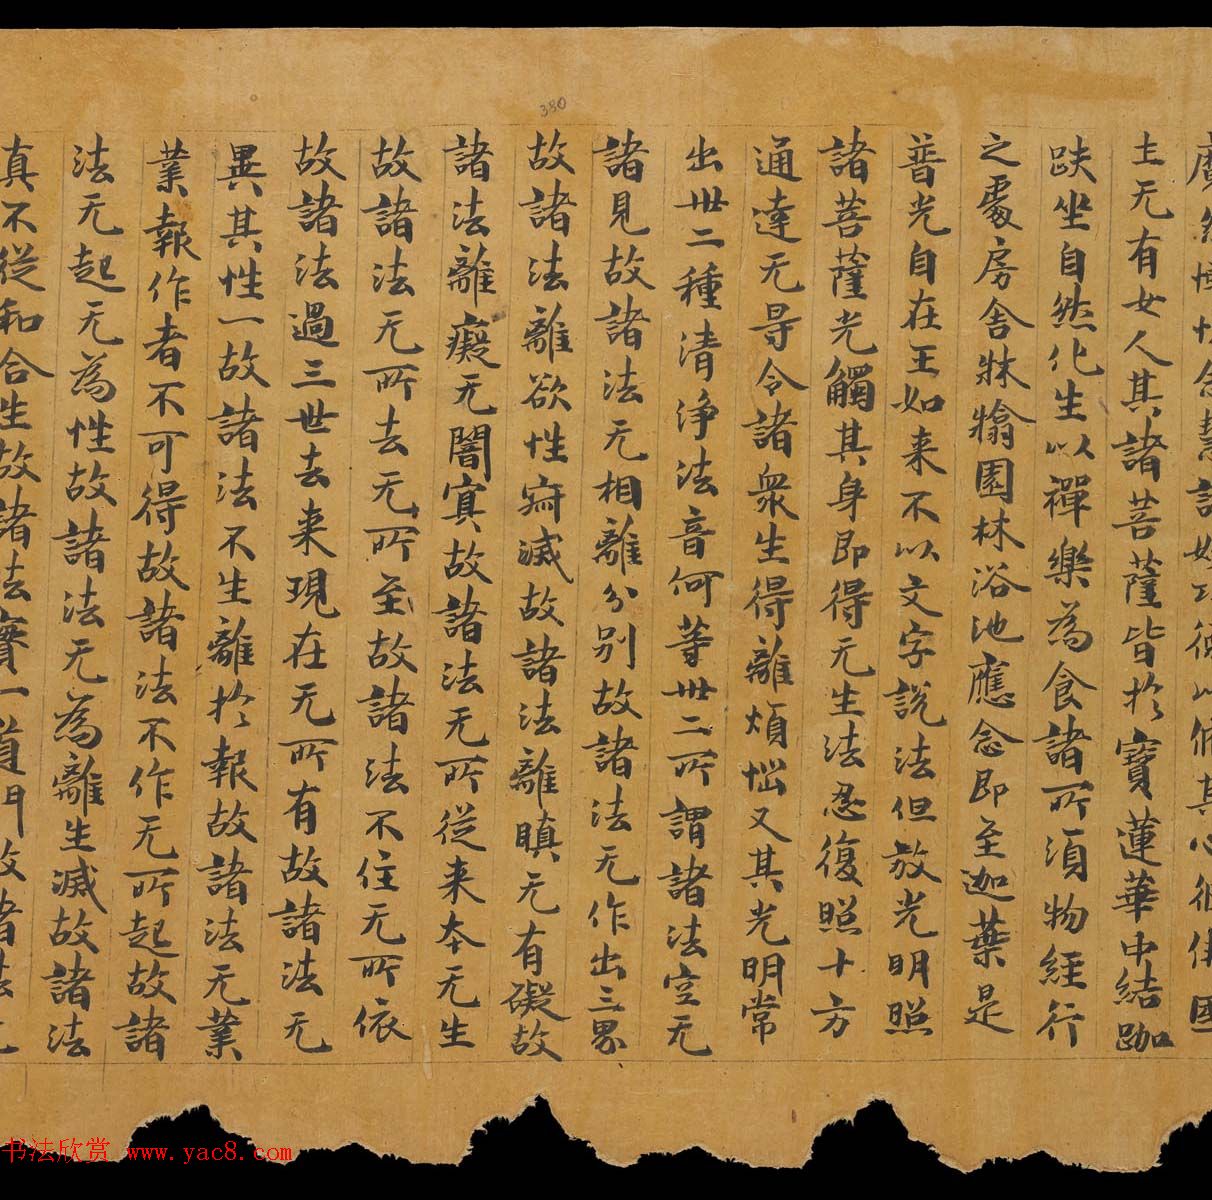 380
土无有女人其諸菩薩皆於寶蓮華中結跏
趺坐自然化生以禪樂為食諸所須物經行
之處房舍牀㯓園林浴池應念即至迦葉是
普光自在王如来不以文字說法但放光明照
諸菩薩光觸其身即得无生法忍復照十方
通達无㝵令諸眾生得離煩惱又其光明常
出卅二種清淨法音何等卅二所謂諸法空无
諸見故諸法无相離分別故諸法无作出三界
故諸法離欲性寂滅故諸法離瞋无有礙故
諸法離癡无闇冥故諸法无所從来本无生
故諸法无所去无所至故諸法不住无所依
故諸法過三世去来現在无所有故諸法无
異其性一故諸法不生離於報故諸法无業
業報作者不可得故諸法不作无所起故諸
法无起无為性故諸法无為離生滅故諸法
真不從和合生故諸法實一道門故諸法
书法欣赏 www.yac8.com